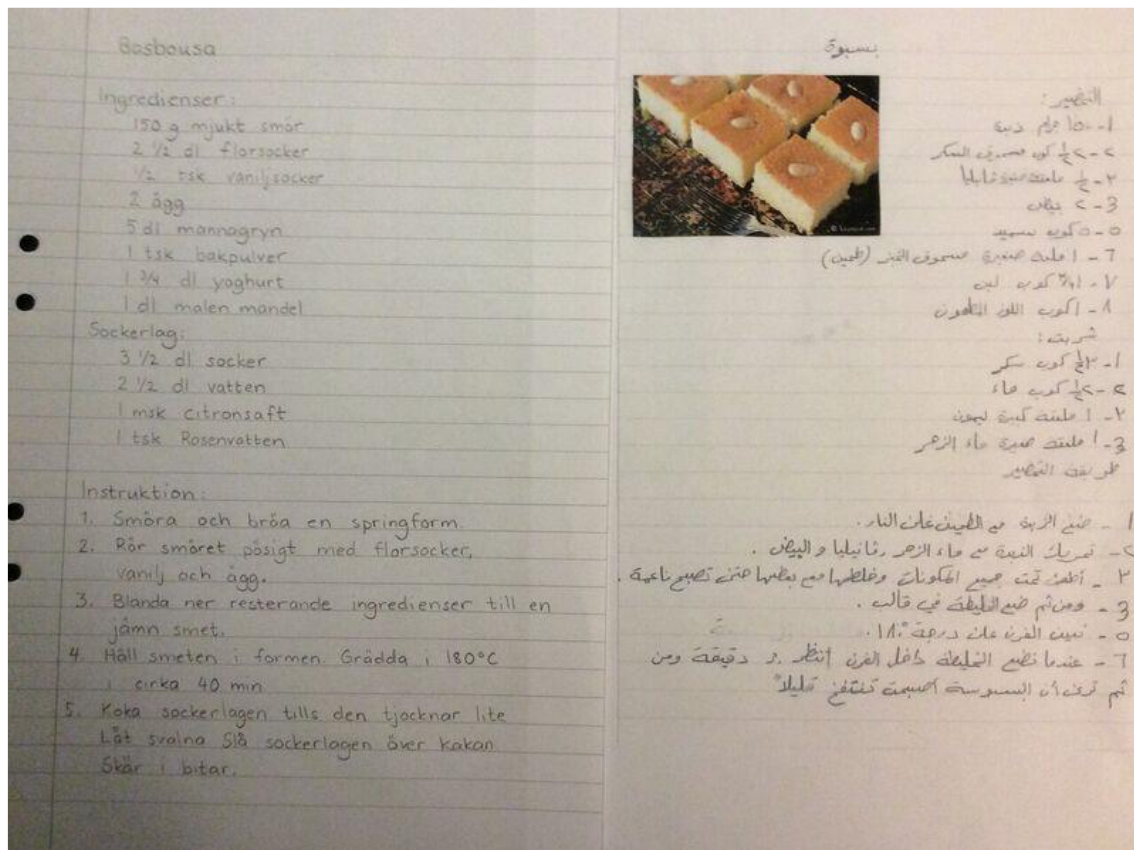 Basbousa
Ingredienser:
150 g mjukt smör
2 1/2 dl florsocker
1/2 tsk vaniljsocker
2 ägg
5 dl mannagryn
1 tsk bakpulver
1 3/4 dl yoghurt
1 dl malen mandel
Sockerlag:
3 1/2 dl socker
2 1/2 dl vatten
1 msk citronsaft
1 tsk Rosenvatten
Instruktion:
1. Smöra och bröa en springform.
2. Rör smöret pösigt med florsocker,
vanilj och ägg.
3. Blanda ner resterande ingredienser till en
jämn smet.
4. Häll smeten i formen. Grädda i 180°C
i cirka 40 min
5. Koka sockerlagen tills den tjocknar lite
Låt svalna Slå sockerlagen över kakan
Skär i bitar.
التحضير:
١- ١٥٠ جرام
٢- ٢ ½ كوب مسحوق السكر
٣- ½ ملعقة صغيرة فانيليا
٤- ٢ بيض
٥- ٥ كوب سميد
٦- ١ ملعقة صغيرة مسحوق الخبز (طحين)
٧- ١ ¾ كوب لبن
٨- ١ كوب اللوز المطحون
شربت:
١- ٣ ½ كوب سكر
٢- ٢ ½ كوب ماء
٣- ١ ملعقة كبيرة ليمون
٤- ١ ملعقة صغيرة ماء الزهر
طريقة التحضير
١- ضع الزبدة مع الطحين على النار.
٢- تحريك الزبدة مع ماء الزهر فانيليا و البيض.
٣- جميع المكونات وخلطها مع بعضها حتى تصبح ناعمة.
٤- ومن ثم ضع الخليطة في قالب.
٥- الفرن على درجة ١٨٠°.
٦- عندما نضع الخليطة داخل الفرن أنتظر دقيقة ومن
ثم ترى أن البسبوسة أصبحت تنتفخ قليلاً